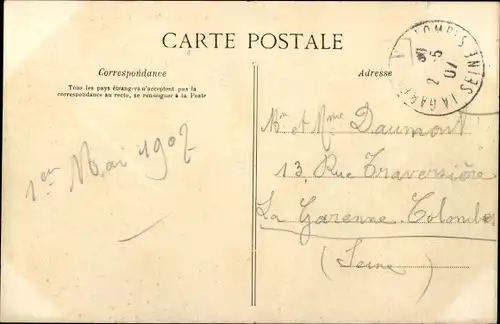 CARTE POSTALE
Correspondance
Tous les pays étrangers n'acceptent pas la
correspondance au recto, se renseigner à la Poste
1er Mai 1907
Adresse
LA GARENNE COLOMBES SEINE
2 - 5
07
Mr et Mme Daumont
13, Rue Traversière
La Garenne-Colombes
(Seine)